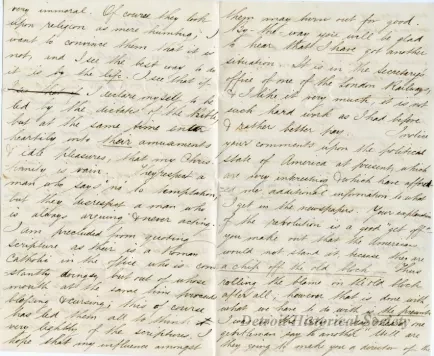 very immoral. Of course they look
upon religion as mere humbug; I
want to convince them that it is
not, and I see the best way to do
it is by the life. I see that if
I declare myself to be
led by the dictates of the Bible
but at the same time enter
heartily into their amusements
& idle pleasures, that my Christ-
ianity is vain. They respect a
man who says no to temptation,
but they disrespect a man who
is always arguing & never acting.
I am precluded from quoting
Scripture as their is a Roman
Catholic in the office who is con-
stantly doing so, but out of whose
mouth at the same time proceed
blessing & cursing; this of course
has led them all to think
very lightly of the scripture. I
hope that my influence amongst
them may turn out for good.
By the way you will be glad
to hear that I have got another
situation. It is in the Secretary's
office of one of the London Railways,
& I like it very much, it is not
such hard work as I had before
& rather better pay.
your comments upon the political
state of America at present, which
are very interesting & which have afford-
ed me additional information to what
I get in the newspapers. Your explanation
of the revolution is a good "get off"
you make out that the American
would not stand it because they are
a chip off the old block.
rolling the blame on the old block
after all, however that is done with
what we have to do with
Detroit Historical Society
gentleman say to another
they going to make you a